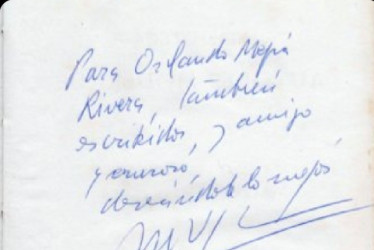 Para Orlando Mejía
Rivera, también
escritor, y amigo
y
deseándole lo mejor